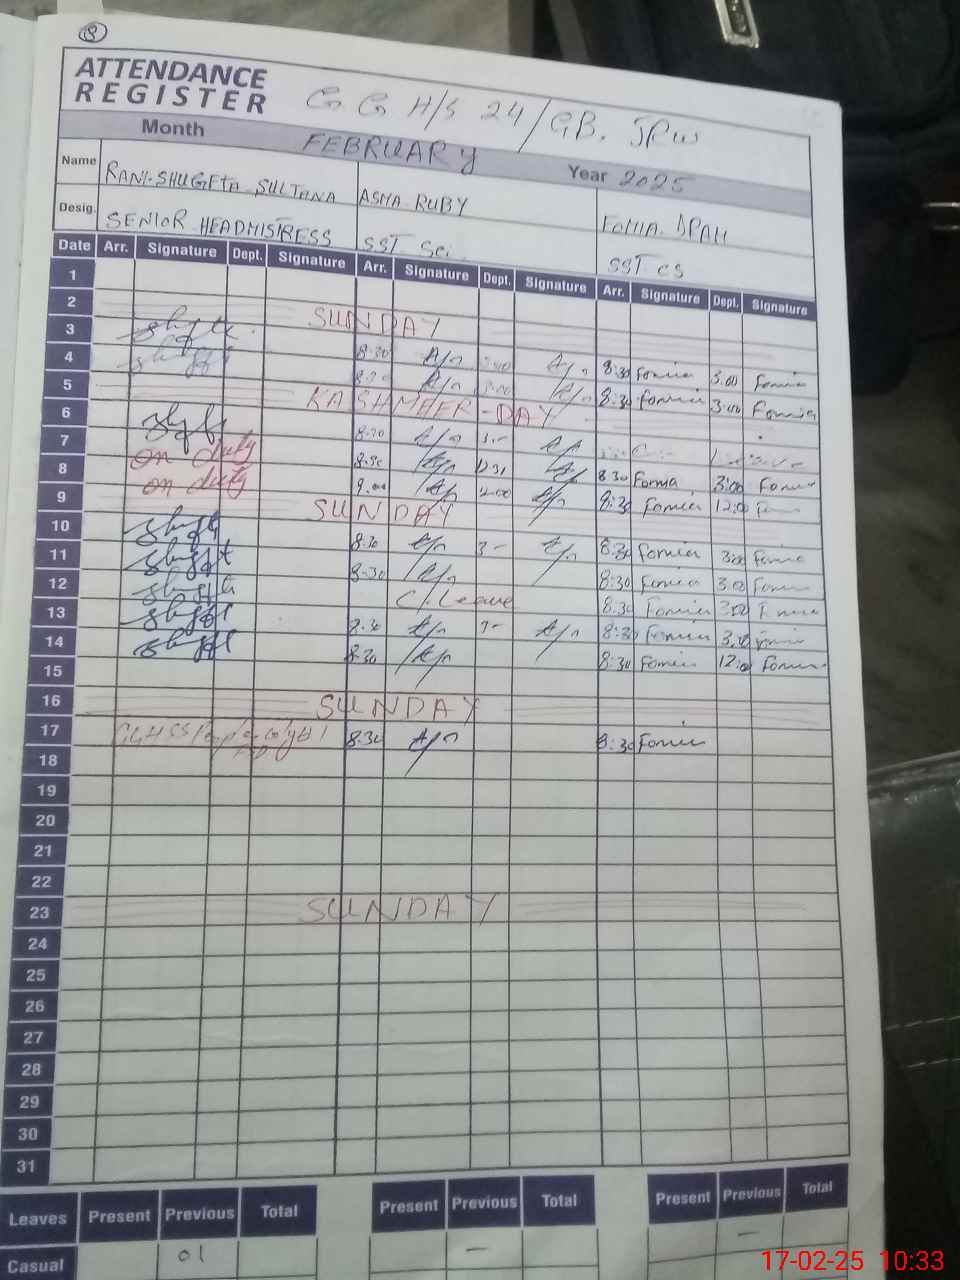 8
ATTENDANCE
REGISTER
G G H/S 24/GB. JRW
Month FEBRUARY Year 2025
Name RANI-SHUGFTA SULTANA ASMA RUBY
Desig. SENIOR HEADMISTRESS SST Sci. SST CS
Date Arr. Signature Dept. Signature Arr. Signature Dept. Signature Arr. Signature Dept. Signature
1
2 SUNDAY
3 8:30 A/n A/n 8:30 Fomia 3:00 Fomia
4 A/n A/n 8:30 Fomia 3:00 Fomia
5 KASHMEER-DAY
6 8:30 A/n 3- Leave
7 on duty 8:30 A/n 12:30 A/n 8:30 Fomia 3:00 Fomia
8 on duty 9:00 A/n 12:00 A/n 8:30 Fomia 12:00 Fomia
9 SUNDAY
10 8:30 A/n 3- A/n 8:30 Fomia 3:00 Fomia
11 8:30 A/n 8:30 Fomia 3:00 Fomia
12 C/Leave 8:30 Fomia 3:00 Fomia
13 8:30 A/n A/n 8:30 Fomia 3:00 Fomia
14 8:30 A/n 8:30 Fomia 12:00 Fomia
15
16 SUNDAY
17 8:30 A/n 8:30 Fomia
18
19
20
21
22
23 SUNDAY
24
25
26
27
28
29
30
31
Leaves Present Previous Total Present Previous Total Present Previous Total
Casual 01 - -
17-02-25 10:33